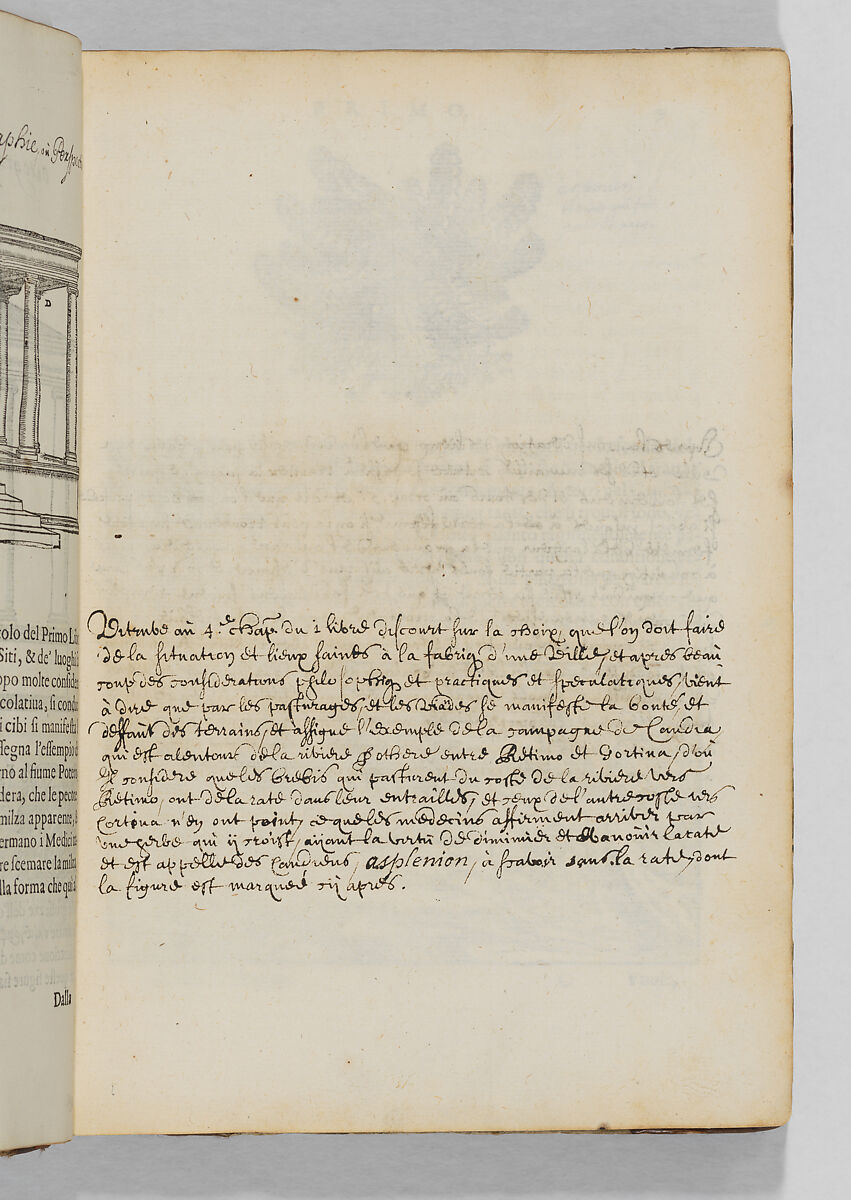 aphie, où Persp
D
colo del Primo Li
Siti, & de' luoghi
ppo molte conside
colatiua, si condu
i cibi si manifesta
segna l'essempio d
rno al fiume Poter
dera, che le pecore
milza apparente,
ermano i Medici
re scemare la milza
lla forma che qui di
Dalla
Vitruve au 4.e chap. du 1 libre discourt sur la choix, que l'on doit faire
de la situation et lieux saints à la fabriq d'une Ville, et apres beau
coup des considerations philosophiq et practiques et speculatiques, vient
à dire que par les pasturages, et les viandes se manifeste la bonté, et
deffaut des terrains, et assigne l'exemple de la campagne de Candia,
qui est alentour de la riviere Pothere entre Retimo et Gortina, d'où
il considere que les brebis qui pasturent du costé de la riviere vers
Retimo, ont de la rate dans leur entrailles, et ceux de l'autre costé vers
Cortona n'en ont point, ce que les medecins affirment arriver par
une herbe qui ij croist, aijant la vertù de diminuer et evanouir la rate
et est appellé des Candiens, asplenion, à scavoir sans la rate, dont
la figure est marqueé cij apres.